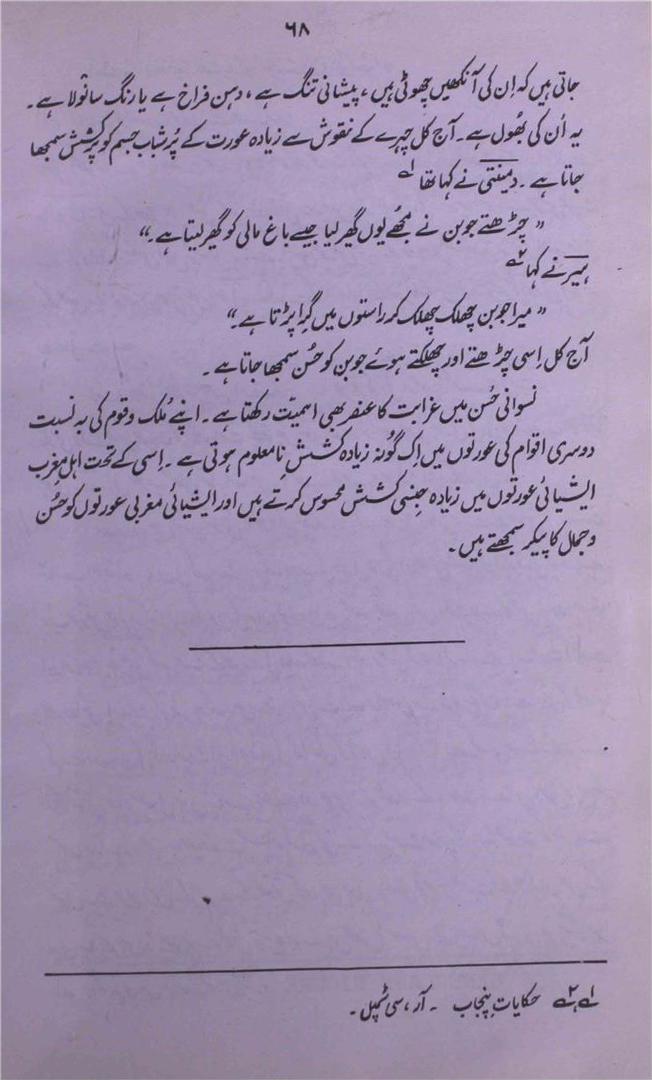 ۶۸
جاتی ہیں کہ اِن کی آنکھیں چھوٹی ہیں ، پیشانی تنگ ہے ، دہن فراخ ہے یا رنگ سانولا ہے ۔
یہ اُن کی بھُول ہے ۔ آج کل چہرے کے نقوش سے زیادہ عورت کے پُر شباب جسم کو پُرکشش سمجھا
جاتا ہے ۔ دمینتی نے کہا تھا ۱ے
” چڑھتے جوبن نے مجھے یوں گھیر لیا جیسے باغ مالی کو گھیر لیتا ہے ۔“
ہیر نے کہا ۲ے
” میرا جوبن چھلک چھلک کر راستوں میں گِرا پڑتا ہے ۔“
آج کل اِسی چڑھتے اور چھلکتے ہوئے جوبن کو حُسن سمجھا جاتا ہے ۔
نسوانی حُسن میں غرابت کا عنصر بھی اہمیّت رکھتا ہے ۔ اپنے مُلک و قوم کی بہ نسبت
دوسری اقوام کی عورتوں میں اِک گُونہ زیادہ کششِ نامعلوم ہوتی ہے ۔ اِسی کے تحت اہلِ مغرب
ایشیائی عورتوں میں زیادہ جنسی کشش محسوس کرتے ہیں اور ایشیائی مغربی عورتوں کو حُسن
و جمال کا پیکر سمجھتے ہیں ۔
۱ے ، ۲ے حکایاتِ پنجاب ۔ آر ، سی ٹمپل ۔